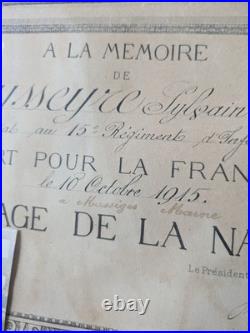 A LA MEMOIRE
DE
Sylvain
au 15e Régiment d'
RT POUR LA FRAN
le 10 Octobre 1915.
a Massiges Marne
AGE DE LA NA
Le Président